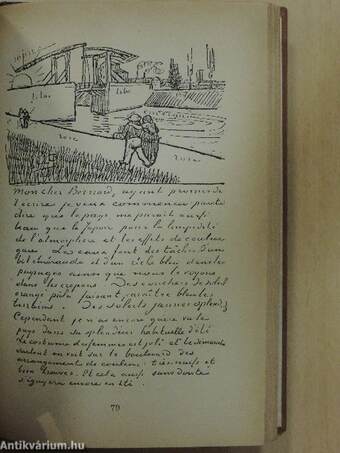 lilas
lilas
rose
rose
mon cher Bernard, ayant promis de
t'écrire je veux commencer par te
dire que le pays me parait aussi
beau que le Japon pour la limpidité
de l'atmosphère et les effets de couleur
gaie. Les eaux font des taches d'un
bel émeraude et d'un riche bleu dans les
paysages ainsi que nous le voyons
dans les crepons. Des couchers de soleil
orangé pâle faisant paraître bleus les
terrains - Des soleils jaunes splendides
Cependant je n'ai encore guère vu le
pays dans sa splendeur habituelle d'été
Le costume des femmes est joli et le dimanche
surtout on voit sur le boulevard des
arrangements de couleur très naïfs et
bien trouvés. Et cela aussi sans doute
s'égayera encore en été.
79
Antikvárium.hu